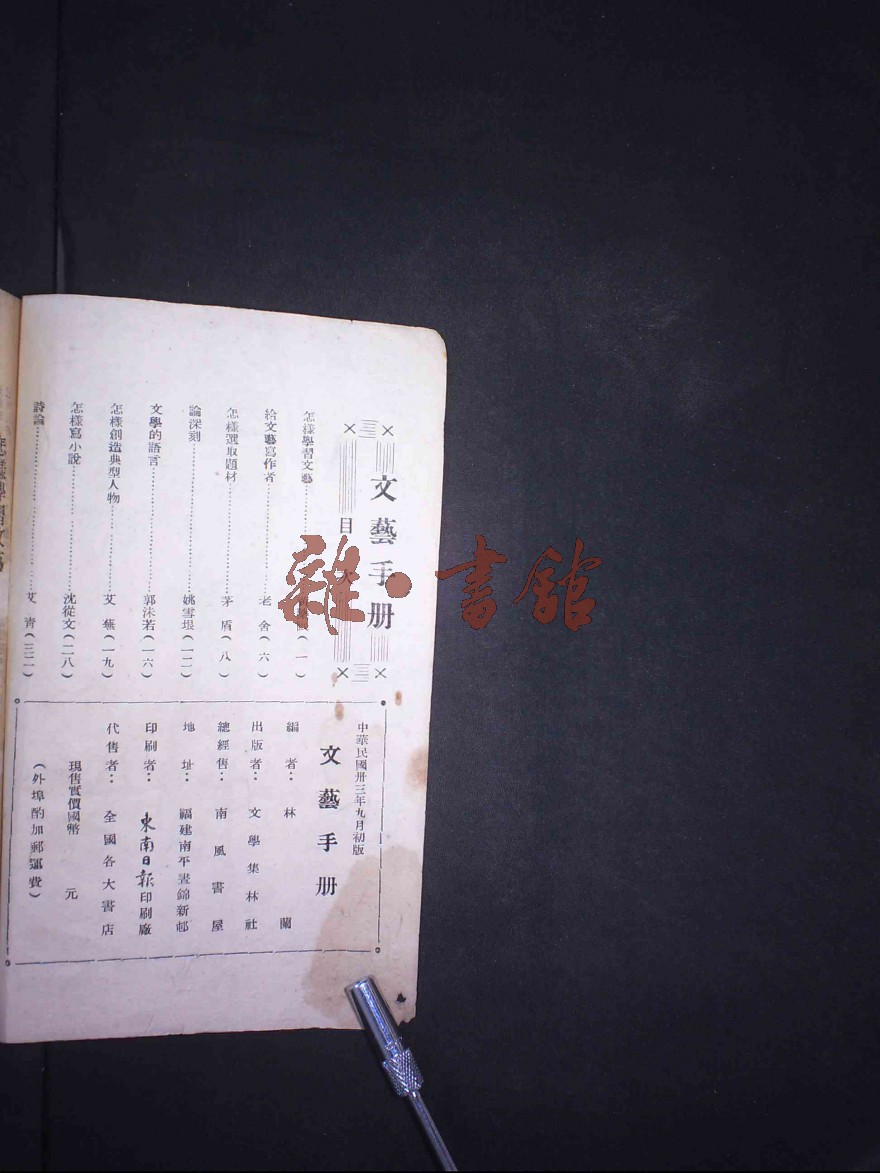 文藝手册
目次
怎樣學習文藝
(一)
給文藝寫作者
老舍(六)
怎樣選取題材
茅盾(八)
論深刻
姚雪垠(一二)
文學的語言
郭沫若(一六)
怎樣創造典型人物
艾蕪(一九)
怎樣寫小說
沈從文(二八)
詩論
艾青(三二)
中華民國卅三年九月初版
文藝手册
編者：林蘭
出版者：文學集林社
總經售：南風書屋
地址：福建南平晝錦新邨
印刷者：東南日報印刷廠
代售者：全國各大書店
現售實價國幣 元
(外埠酌加郵運費)
雜·書館